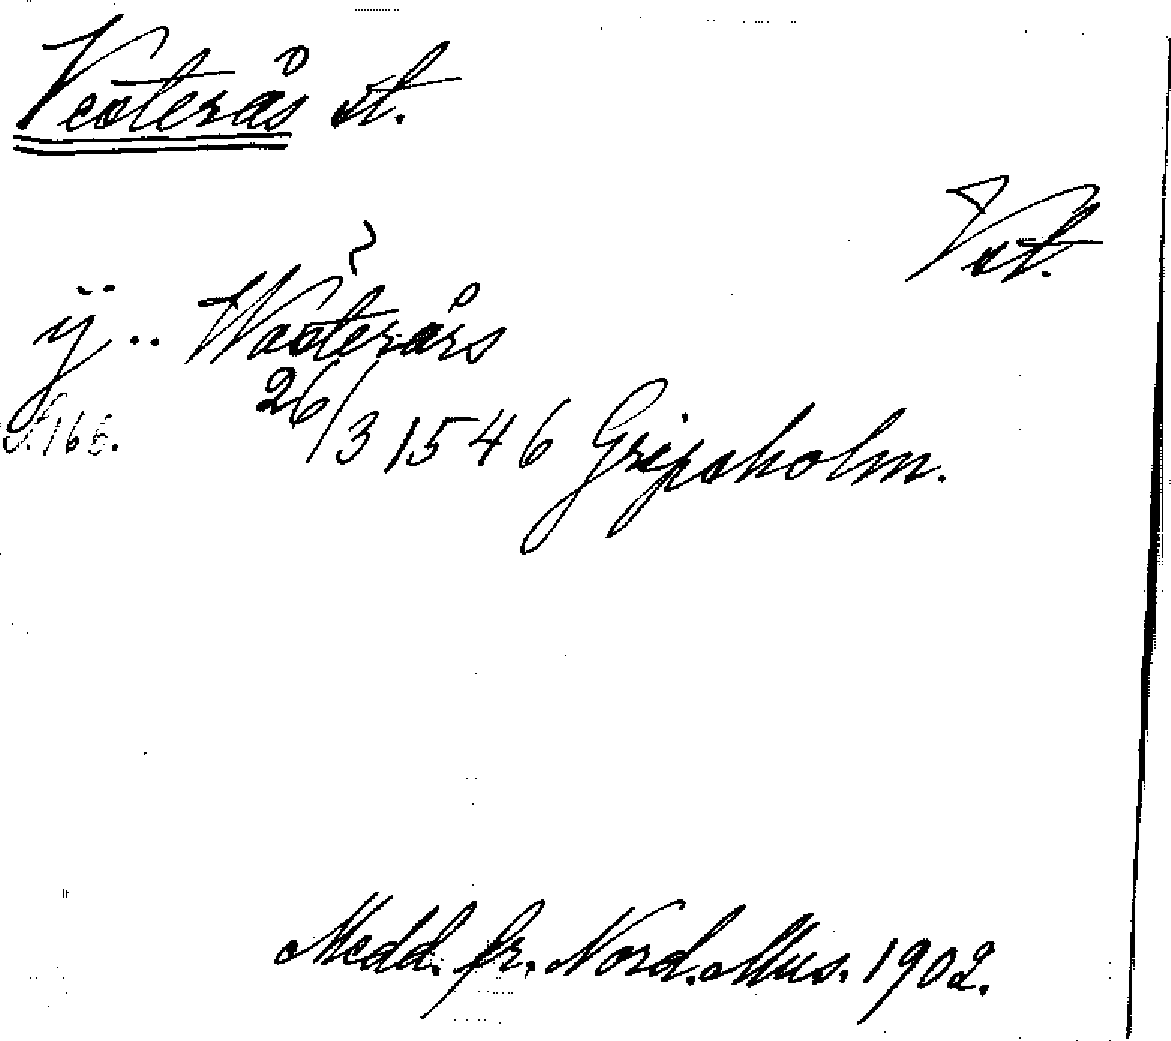 Västerås st.
Vst.
ÿ.. Wästerårs
S. 166.
26/3 1546 Gripsholm.
Medd. fr. Nord. Mus. 1902.